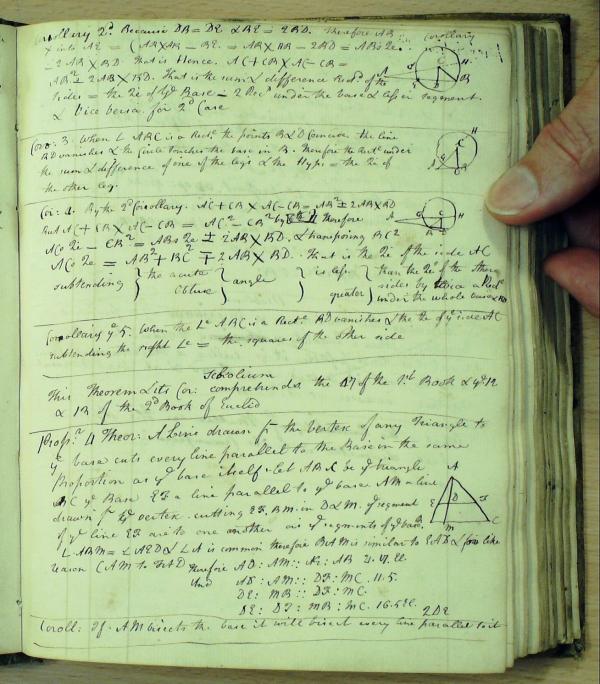 Corollary 2d. Because DB = DE & BE = 2BD. Therefore AB Corollary
× into AE = (AB×AB − BE = AB × AB − 2BD = ABs 2e.
− 2AB × BD. that is Hence. AC + CB × AC − CB =
AB2 ± 2AB × BD. That is the sum & difference Rect. of the
sides = the 2e of ye Base − 2 Rec under the base & lesser segment.
& vice versa for 2d Case
Cor: 3. When L ABC is a Rect. the points B & D Coincide, the line
BD vanishes & the Circle touches the base in B. Therefore the Rect. under
the sum & difference of one of the legs & the Hyp: = the 2e of
the other leg.
Cor: 4. By the 2d Corollary. AC + CB × AC − CB = AB2 ± 2AB × BD
But AC + CB × AC − CB = AC2 − CB2 by therefore
ACs 2e − CB2 = ABs 2e ± 2AB × BD. & transposing BC2
ACs 2e = AB2 + BC2 ∓ 2AB × BD. that is the 2e of the side AC
subtending } the acute } angle } is less } than the 2s of the other
obtuse greater sides by twice a Rect
under the whole base &
Corollary ye 5. When the Le ABC is a Rect. BD vanishes & the 2e of ye side AC
subtending the right Le = the squares of the other side
Scholium
This Theorem & its Cor: comprehends the 47 of the 1st Book & ye 12
& 13 of the 2d Book of Euclid
Props.n 4 Theor: A Line drawn fm the vertex of any Triangle to
ye base cuts every line parallel to the Base in the same
Proportion as ye base itself. Let ABC be ye triangle
BC ye Base EF a line parallel to ye base AM a line
drawn fm ye vertex cutting EF, BM in D & M. ye segment
of ye line EF are to one another as ye segments of ye base.
L ABM = L AED & L A is common therefore BAM is similar to EAD & for like
reason CAM to FAD therefore AD : AM :: AE : AB
And AD : AM :: DF : MC. 11.5.
DE : MB :: DF : MC.
DE : DF :: MB : MC. 16.5 El. 2DE
Coroll: If AM bisects the base it will bisect every line parallel to it